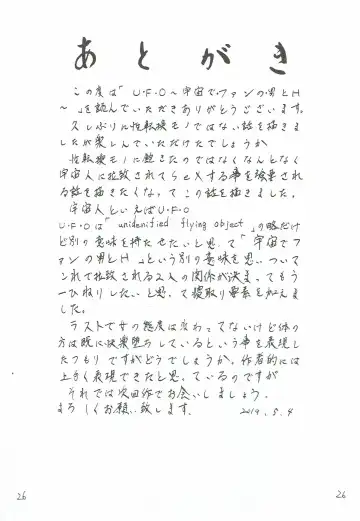 あとがき
この度は「U・F・O～宇宙でファンの男とH
～」を読んでいただきありがとうございます。
久しぶりに性転換モノではない話を描きま
したが楽しんでいただけたでしょうか
性転換モノに飽きたのではなくなんとなく
宇宙人に拉致されてSeXする事を強要され
る話を描きたくなってこの話を描きました。
宇宙人といえばU・F・O
U・F・Oは「unidenified flying object」の略だけ
ど別の意味を持たせたいと思って「宇宙でフ
ァンの男とH」という別の意味を思いついて
これで拉致される2人の関係が決まってもう
一ひねりしたいと思って寝取り要素を加えま
した。
ラストで女の態度は変わってないけど体の
方は既に快楽堕ちしているという事を表現し
たつもりですがどうでしょうか。作者的には
上手く表現できたと思っているのですが
それでは次回作でお会いしましょう。
よろしくお願い致します。 2019.5.4
26
26